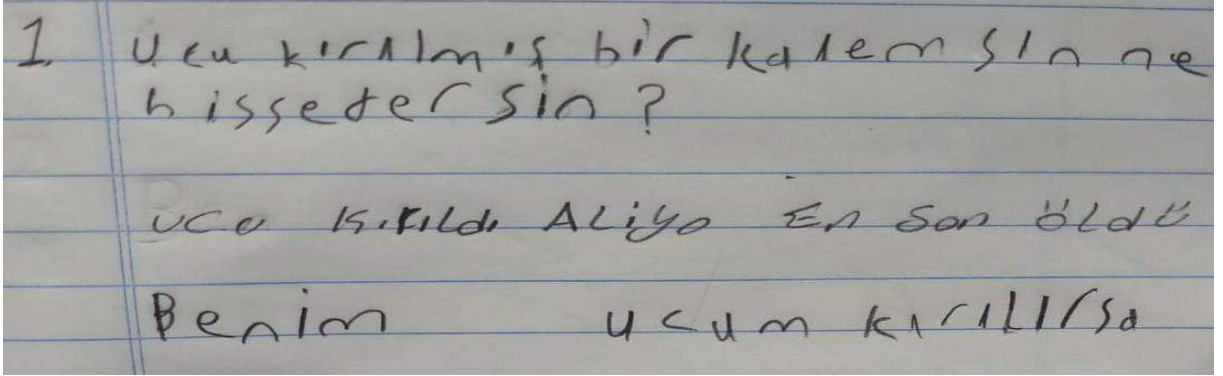 1. Ucu kırılmış bir kalemsin ne
hissedersin?
UCU KIRILdı ALiyo En Son öLdü
Benim ucum kırıLırsa